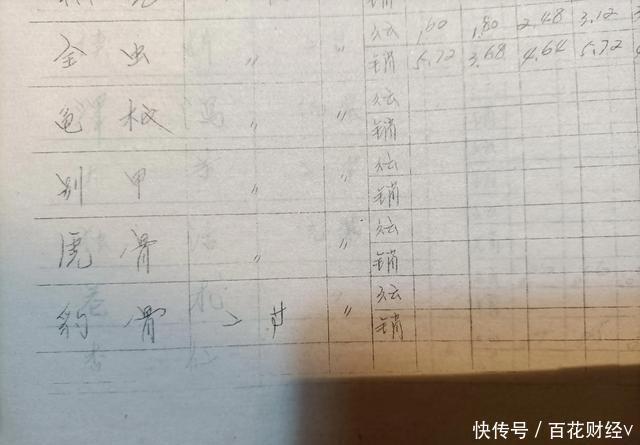 销
全虫 〃 〃 纭 1.60 1.80 2.48 3.12
销 5.72 3.68 4.64 5.72
龟板 〃 〃 纭
销
别甲 〃 〃 纭
销
虎骨 〃 〃 纭
销
豹骨 〃 纭
销
快传号／百花财经v